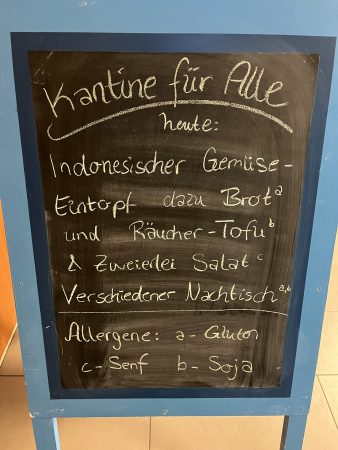 Kantine für Alle
heute:
Indonesischer Gemüse-
Eintopf dazu Brot a
und Räucher-Tofu b
& Zweierlei Salat c
Verschiedener Nachtisch a,b
Allergene: a - Gluten
c - Senf b - Soja